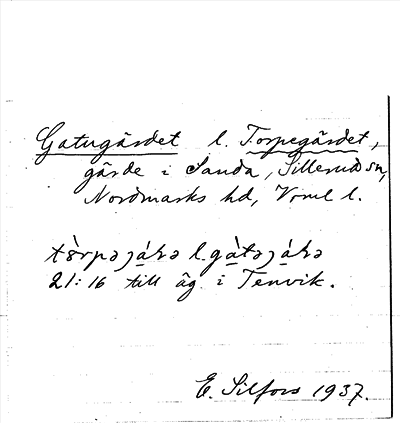 Gatugärdet l. Torpegärdet,
gärde i Sanda, Sillerud sn,
Nordmarks hd, Vrml l.
21:16 till äg. i Tenvik.
E. Silfors 1937.